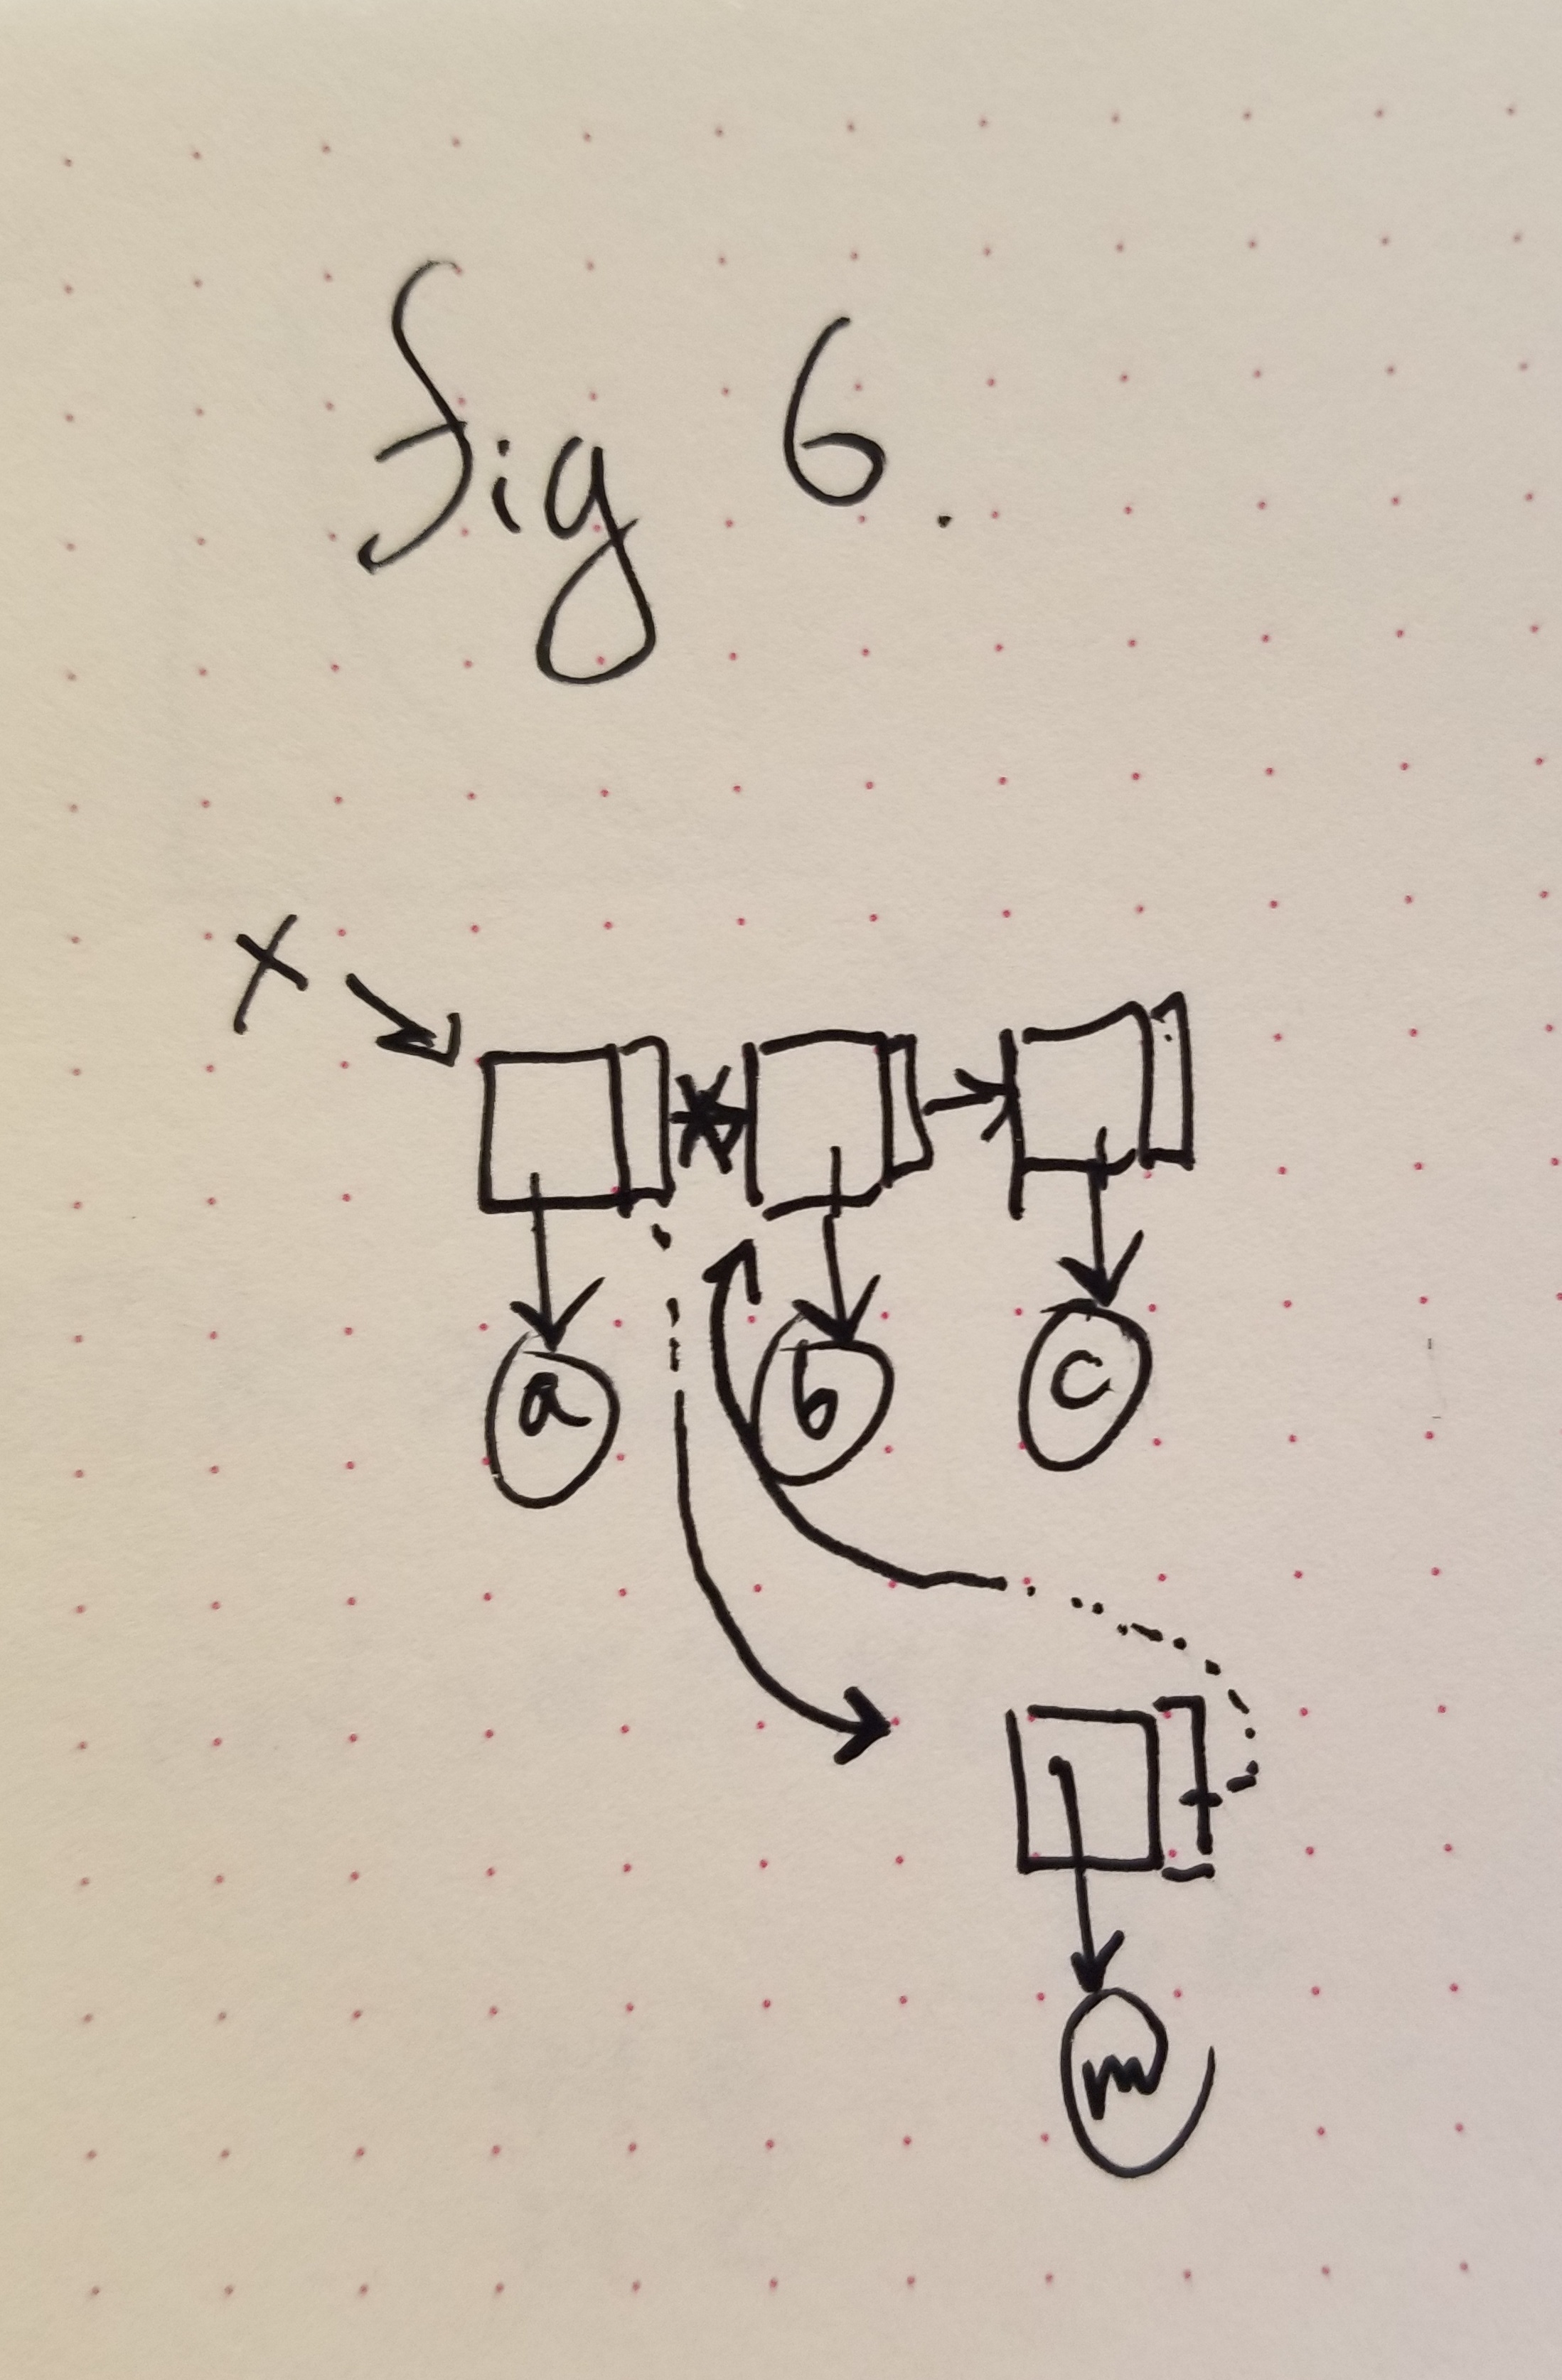 fig 6.
x
a b c
m